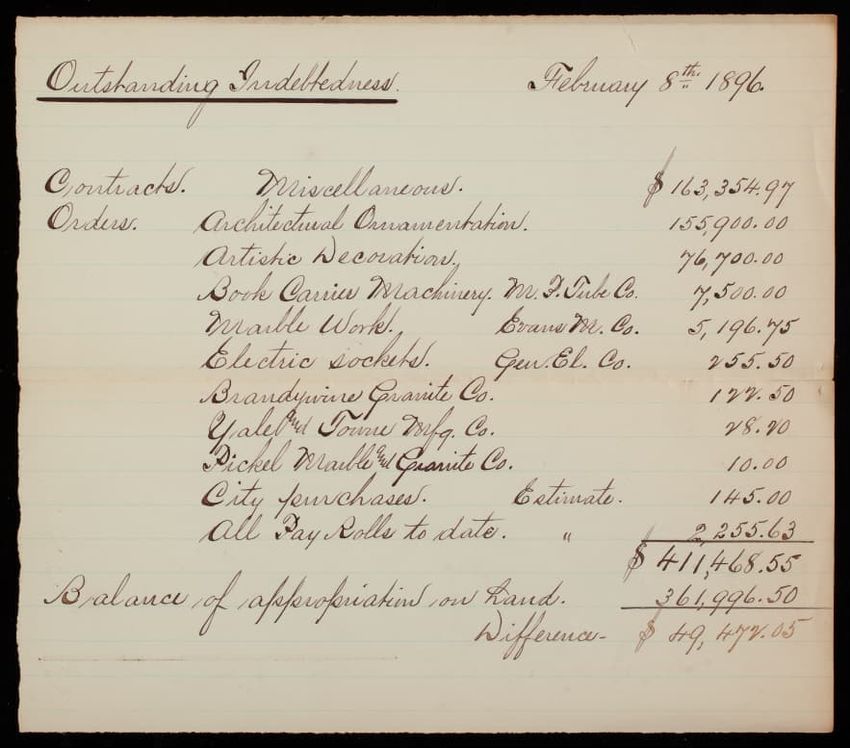 Outstanding Indebtedness. February 8th 1896.
Contracts. Miscellaneous. $ 163,354.97
Orders. Architectural Ornamentation. 155,900.00
Artistic Decoration. 76,700.00
Book Carrier Machinery. M. F. Tube Co. 7,500.00
Marble Work. Evans M. Co. 5,196.75
Electric sockets. Gen. El. Co. 255.50
Brandywine Granite Co. 122.50
Yale and Towne Mfg. Co. 28.20
Pickel Marble and Granite Co. 10.00
City purchases. Estimate. 145.00
All Pay Rolls to date. " 2,255.63
$ 411,468.55
Balance of appropriation on hand. 361,996.50
Difference- $ 49,472.05